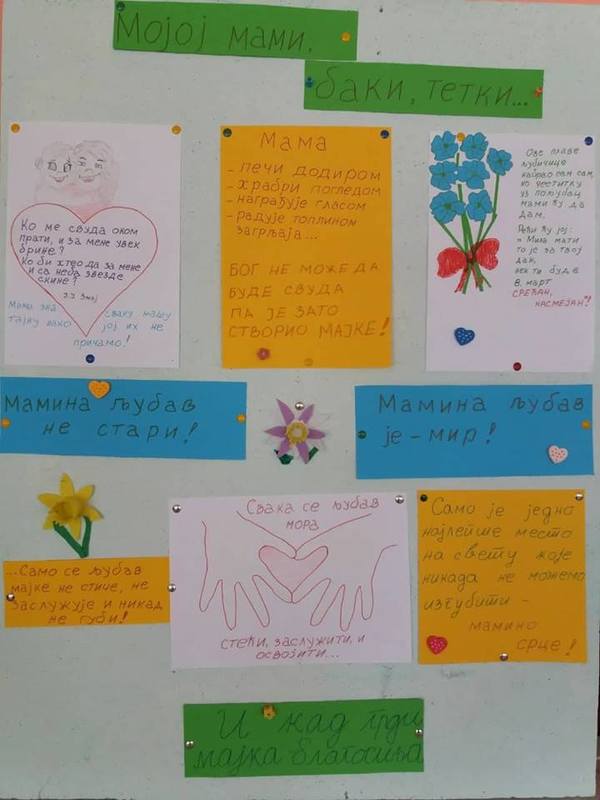 Мојој мами,
баки, тетки...
Ко ме свуда оком
прати, и за мене увек
брине?
Ко би хтео да за мене
и са неба звезде
скине?
Ј.Ј. Змај
Мама зна сваку нашу
тајну иако јој их не
причамо!
Мама
- лечи додиром
- храбри погледом
- награђује гласом
- радује топлином
загрљаја...
БОГ НЕ МОЖЕ ДА
БУДЕ СВУДА
ПА ЈЕ ЗАТО
СТВОРИО МАЈКЕ!
Ове плаве
љубичице
набрао сам сам,
ко честитку
уз пољубац
мами ћу да
дам.
Рећи ћу јој:
"Мила мати
то је за твој
дан,
нек ти буде
8. март
СРЕЋАН,
НАСМЕЈАН"!
Мамина љубав
не стари!
Мамина љубав
је - мир!
...Само се љубав
мајке не стиче, не
заслужује и никад
не губи!
Свака се љубав
мора
стећи, заслужити, и
освојити...
Само је једно
најлепше место
на свету које
никада не можемо
изгубити -
мамино
срце!
И кад грди
мајка благосиља